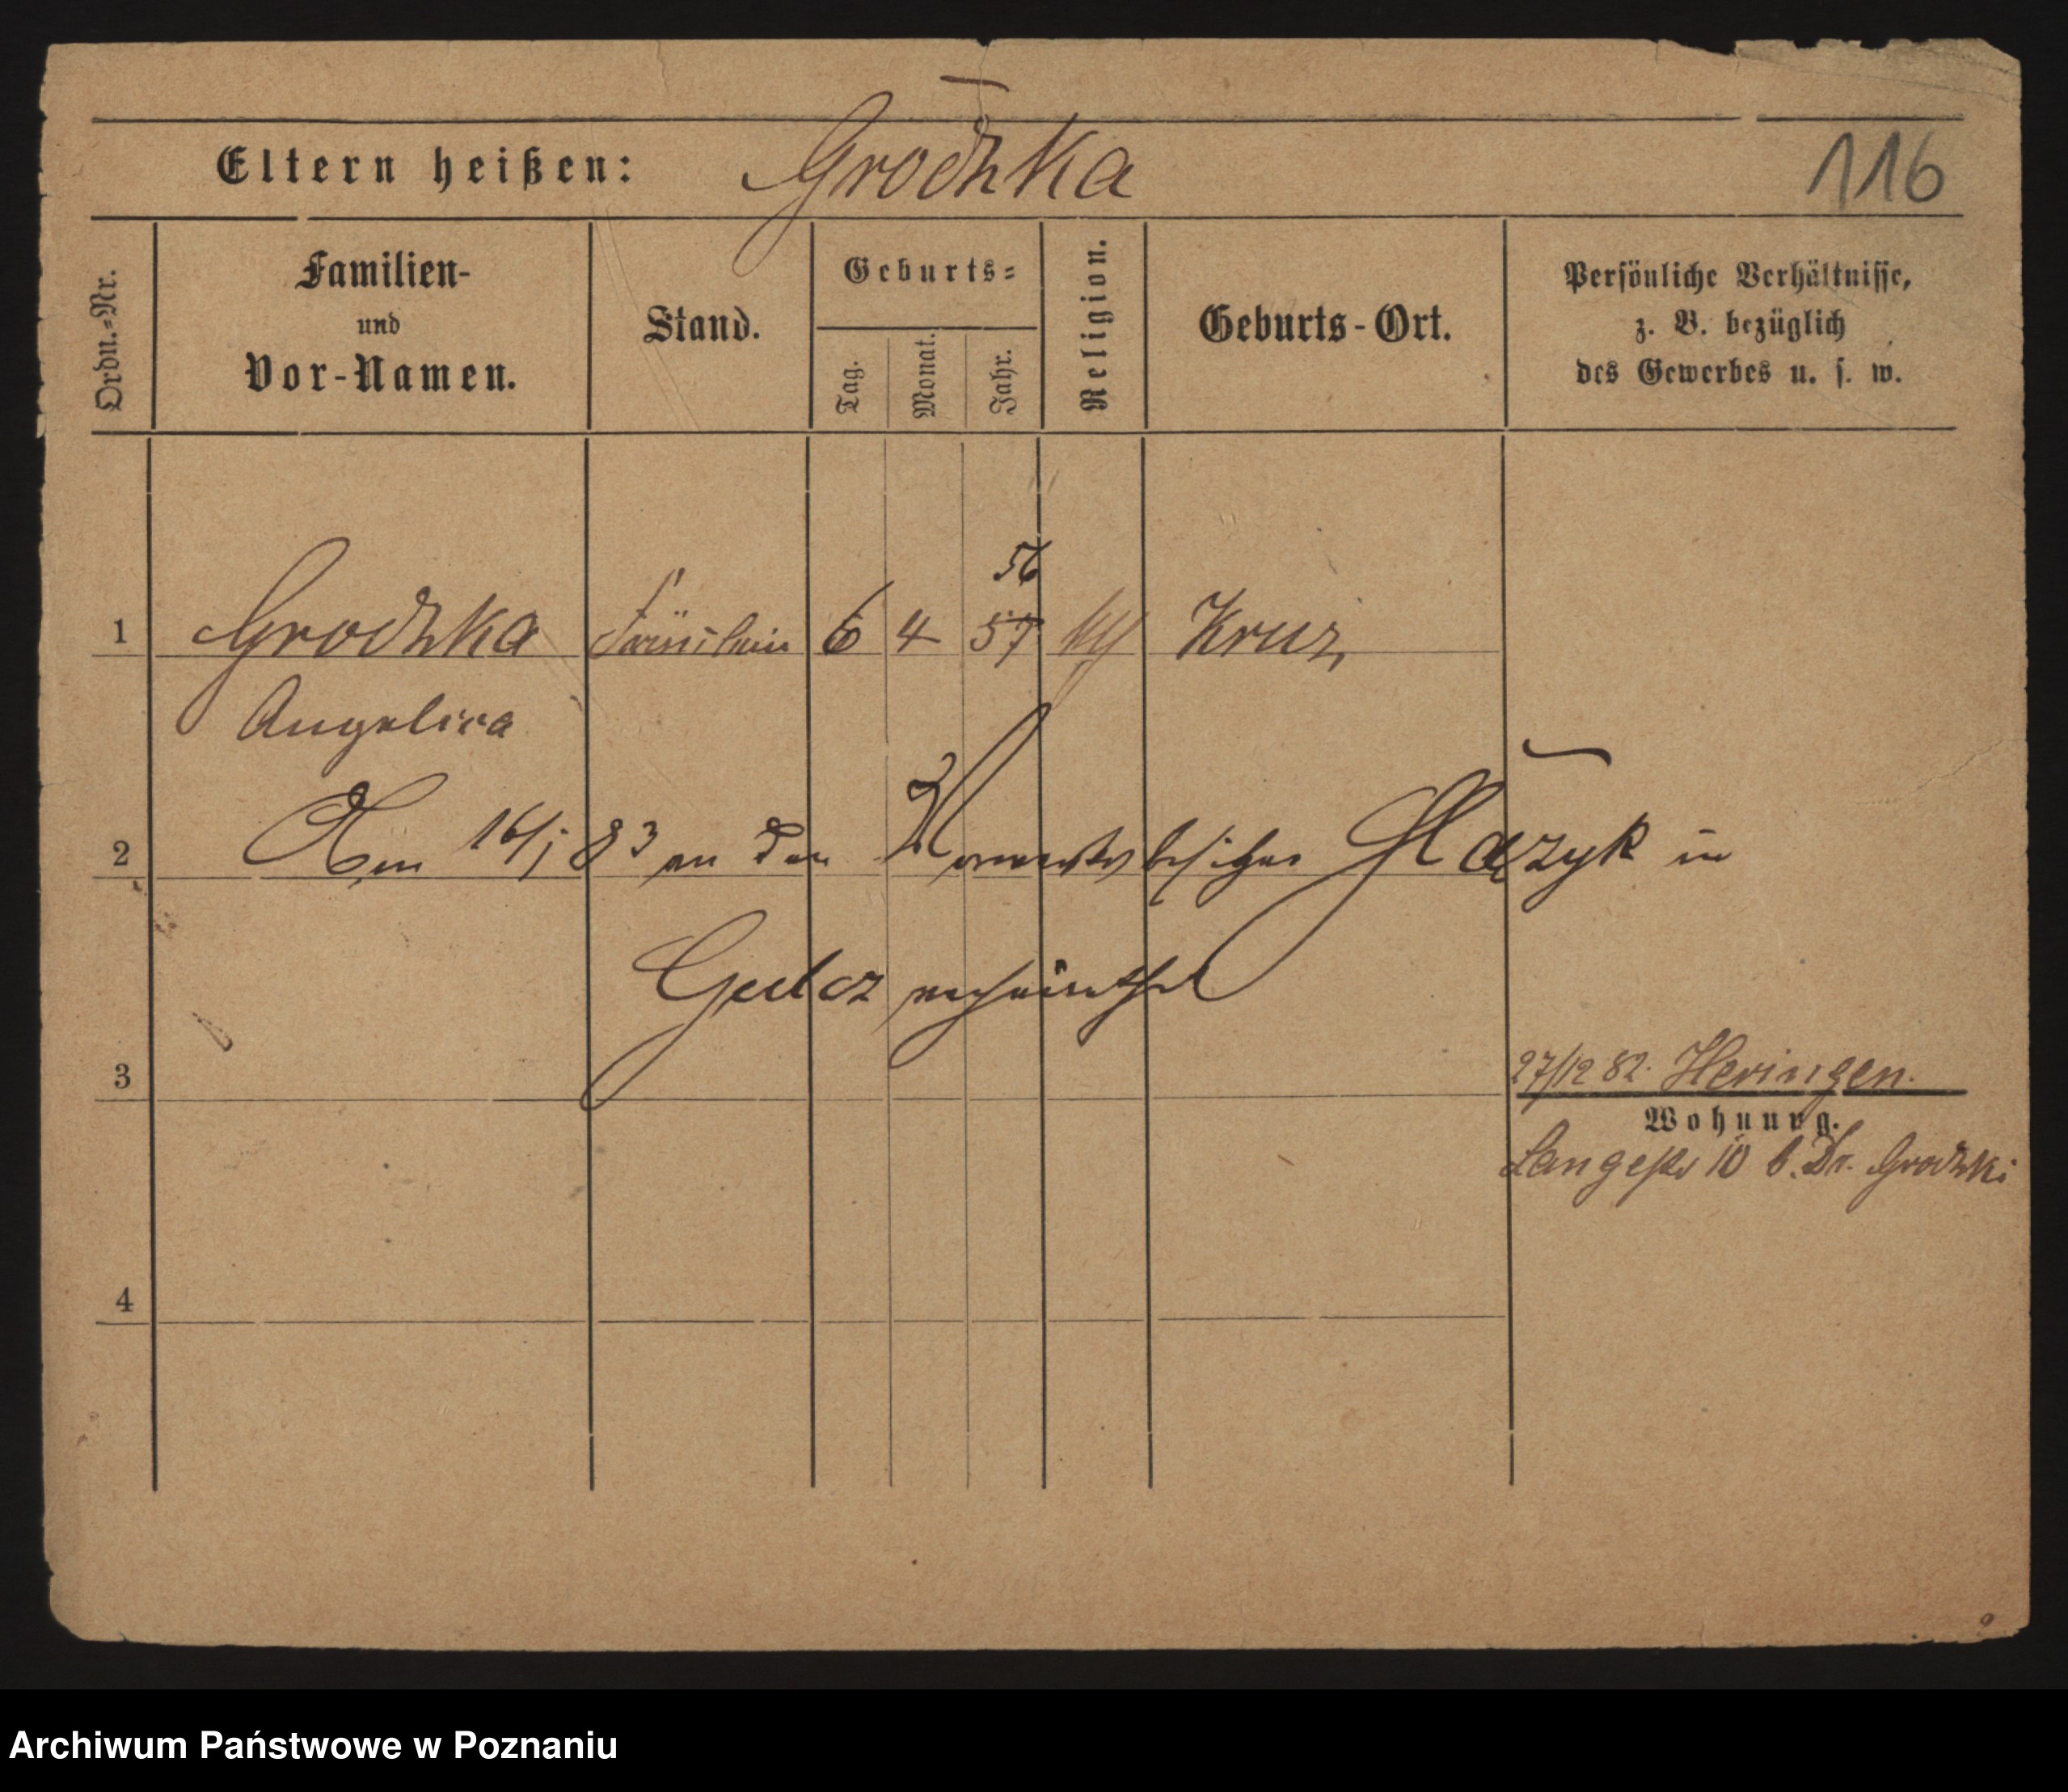 Eltern heißen: Grodzka 116
Ordn.-Nr.
Familien-
und
Vor-Namen.
Stand.
Geburts-
Tag.
Monat.
Jahr.
Religion.
Geburts-Ort.
Persönliche Verhältnisse,
z. B. bezüglich
des Gewerbes u. s. w.
56
1 Grodzka Fräulein 6 4 57 Kruz,
Angelica
2 Am 16/1 83 an den Vorwerksbesitzer in
Gulcz verheirathet
3
27/12 82. Heringen.
Wohnung.
Langestr 10 b. Dr. Grodzki
4
Archiwum Państwowe w Poznaniu